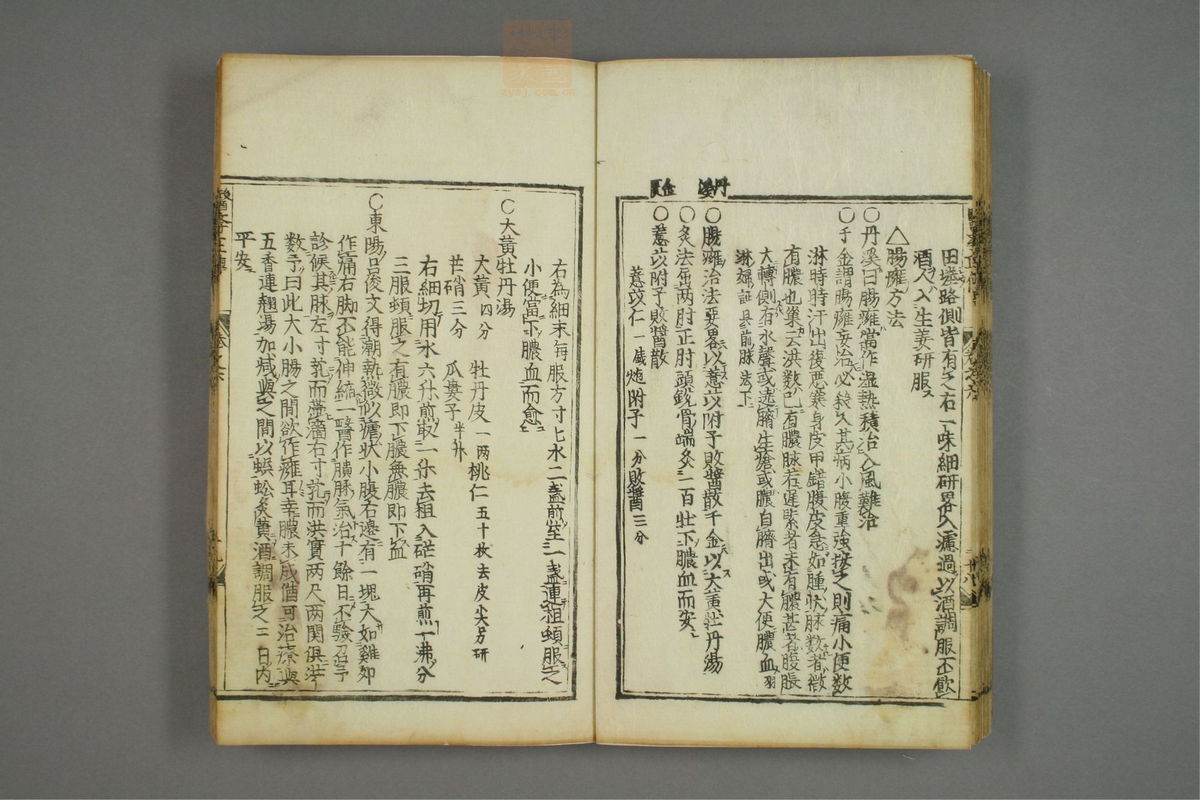 丹溪 金匱
田塍路側皆有之右一味細研畧入濾過以酒調服不飲
酒人入生姜研服
△腸癰方法
○丹溪曰腸癰當作濕熱積治入風難治
○千金謂腸癰妄治必殺人其病小腹重強按之則痛小便數
淋時時汗出復惡寒身皮甲錯腹皮急如腫狀脉数者微
有膿也巢云洪数已有膿脉若遲緊者未有膿甚者腹脹
大轉側有水聲或遶臍生瘡或膿自臍出或大便膿血
○腸癰治法要畧以薏苡附子敗醬散千金以大黄牡丹湯
○灸法屈两肘正肘頭銳骨端灸一百壮下膿血而安
○薏苡附子敗醬散
薏苡仁 炮附子一分敗醬三分
右為細末每服方寸匕水二盞煎至一盞連粗頓服之
小便當下膿血而愈
○大黄牡丹湯
大黄四分 牡丹皮一两桃仁五十枚去皮尖另研
芒硝三分 瓜蔞子半升
右細切用水六升煎取一升去粗入硭硝再煎一沸分
二服頓服之有膿即下膿無膿即下血
○東陽呂俊文得潮熱微似瘧状小腹右邊有一塊大如雞卵
作痛右脚不能伸縮一醫作賁豚氣治十餘日不驗召予
診候其脉左寸芤而帶濇右寸芤而洪實两尺两関俱洪
数予曰此大小腸之間欲作癰耳幸膿未成猶可治療與
五香連翹湯加减與之間以蜈蚣炙黄酒調服之二日内
平安